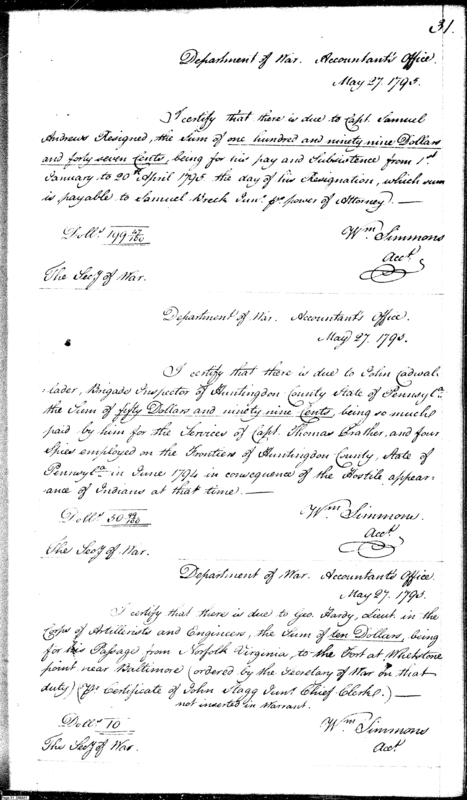 31.
Department of War. Accountant's Office.
May 27. 1795.
I certify that there is due to Capt. Samuel
Andrews Resigned, the Sum of one hundred and ninety nine Dollars
and forty seven Cents, being for his pay and Subsistence from 1st
January to 20th April 1795 the day of his Resignation, which sum
is payable to Samuel Breck Junr. pr power of Attorney. —
Dolls 199 47/100
Wm Simmons
Acct.
The Secy of War.
Department of War. Accountant's Office.
May 27. 1795.
I certify that there is due to John Cadwal-
lader, Brigade Inspector of Huntingdon County State of Pennsyla.
the Sum of fifty Dollars and ninety nine Cents, being so much
paid by him for the Services of Capt. Thomas Prather, and four
Spies employed on the Frontiers of Huntingdon County, State of
Pennsyla. in June 1794 in consequence of the Hostile appear-
ance of Indians at that time. —
Dolls 50 99/100
Wm Simmons.
Acct.
The Secy of War.
Department of War. Accountant's Office.
May 27. 1795.
I certify that there is due to Geo. Hardy, Lieut. in the
Corps of Artillerists and Engineers, the Sum of ten Dollars, being
for his Passage from Norfolk Virginia, to the Fort at Whetstone
point near Baltimore (ordered by the Secretary of War on that
duty) (Pr Certificate of John Stagg Junr. Chief Clerk.) —
not inserted in Warrant.
Dolls 10
Wm Simmons
Acct.
The Secy of War.